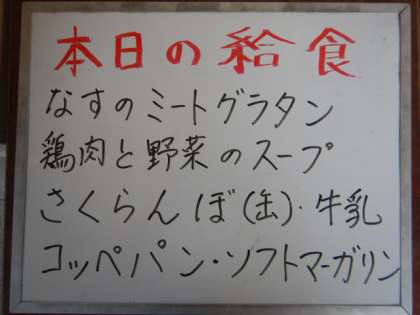 本日の給食
なすのミートグラタン
鶏肉と野菜のスープ
さくらんぼ(缶)・牛乳
コッペパン・ソフトマーガリン